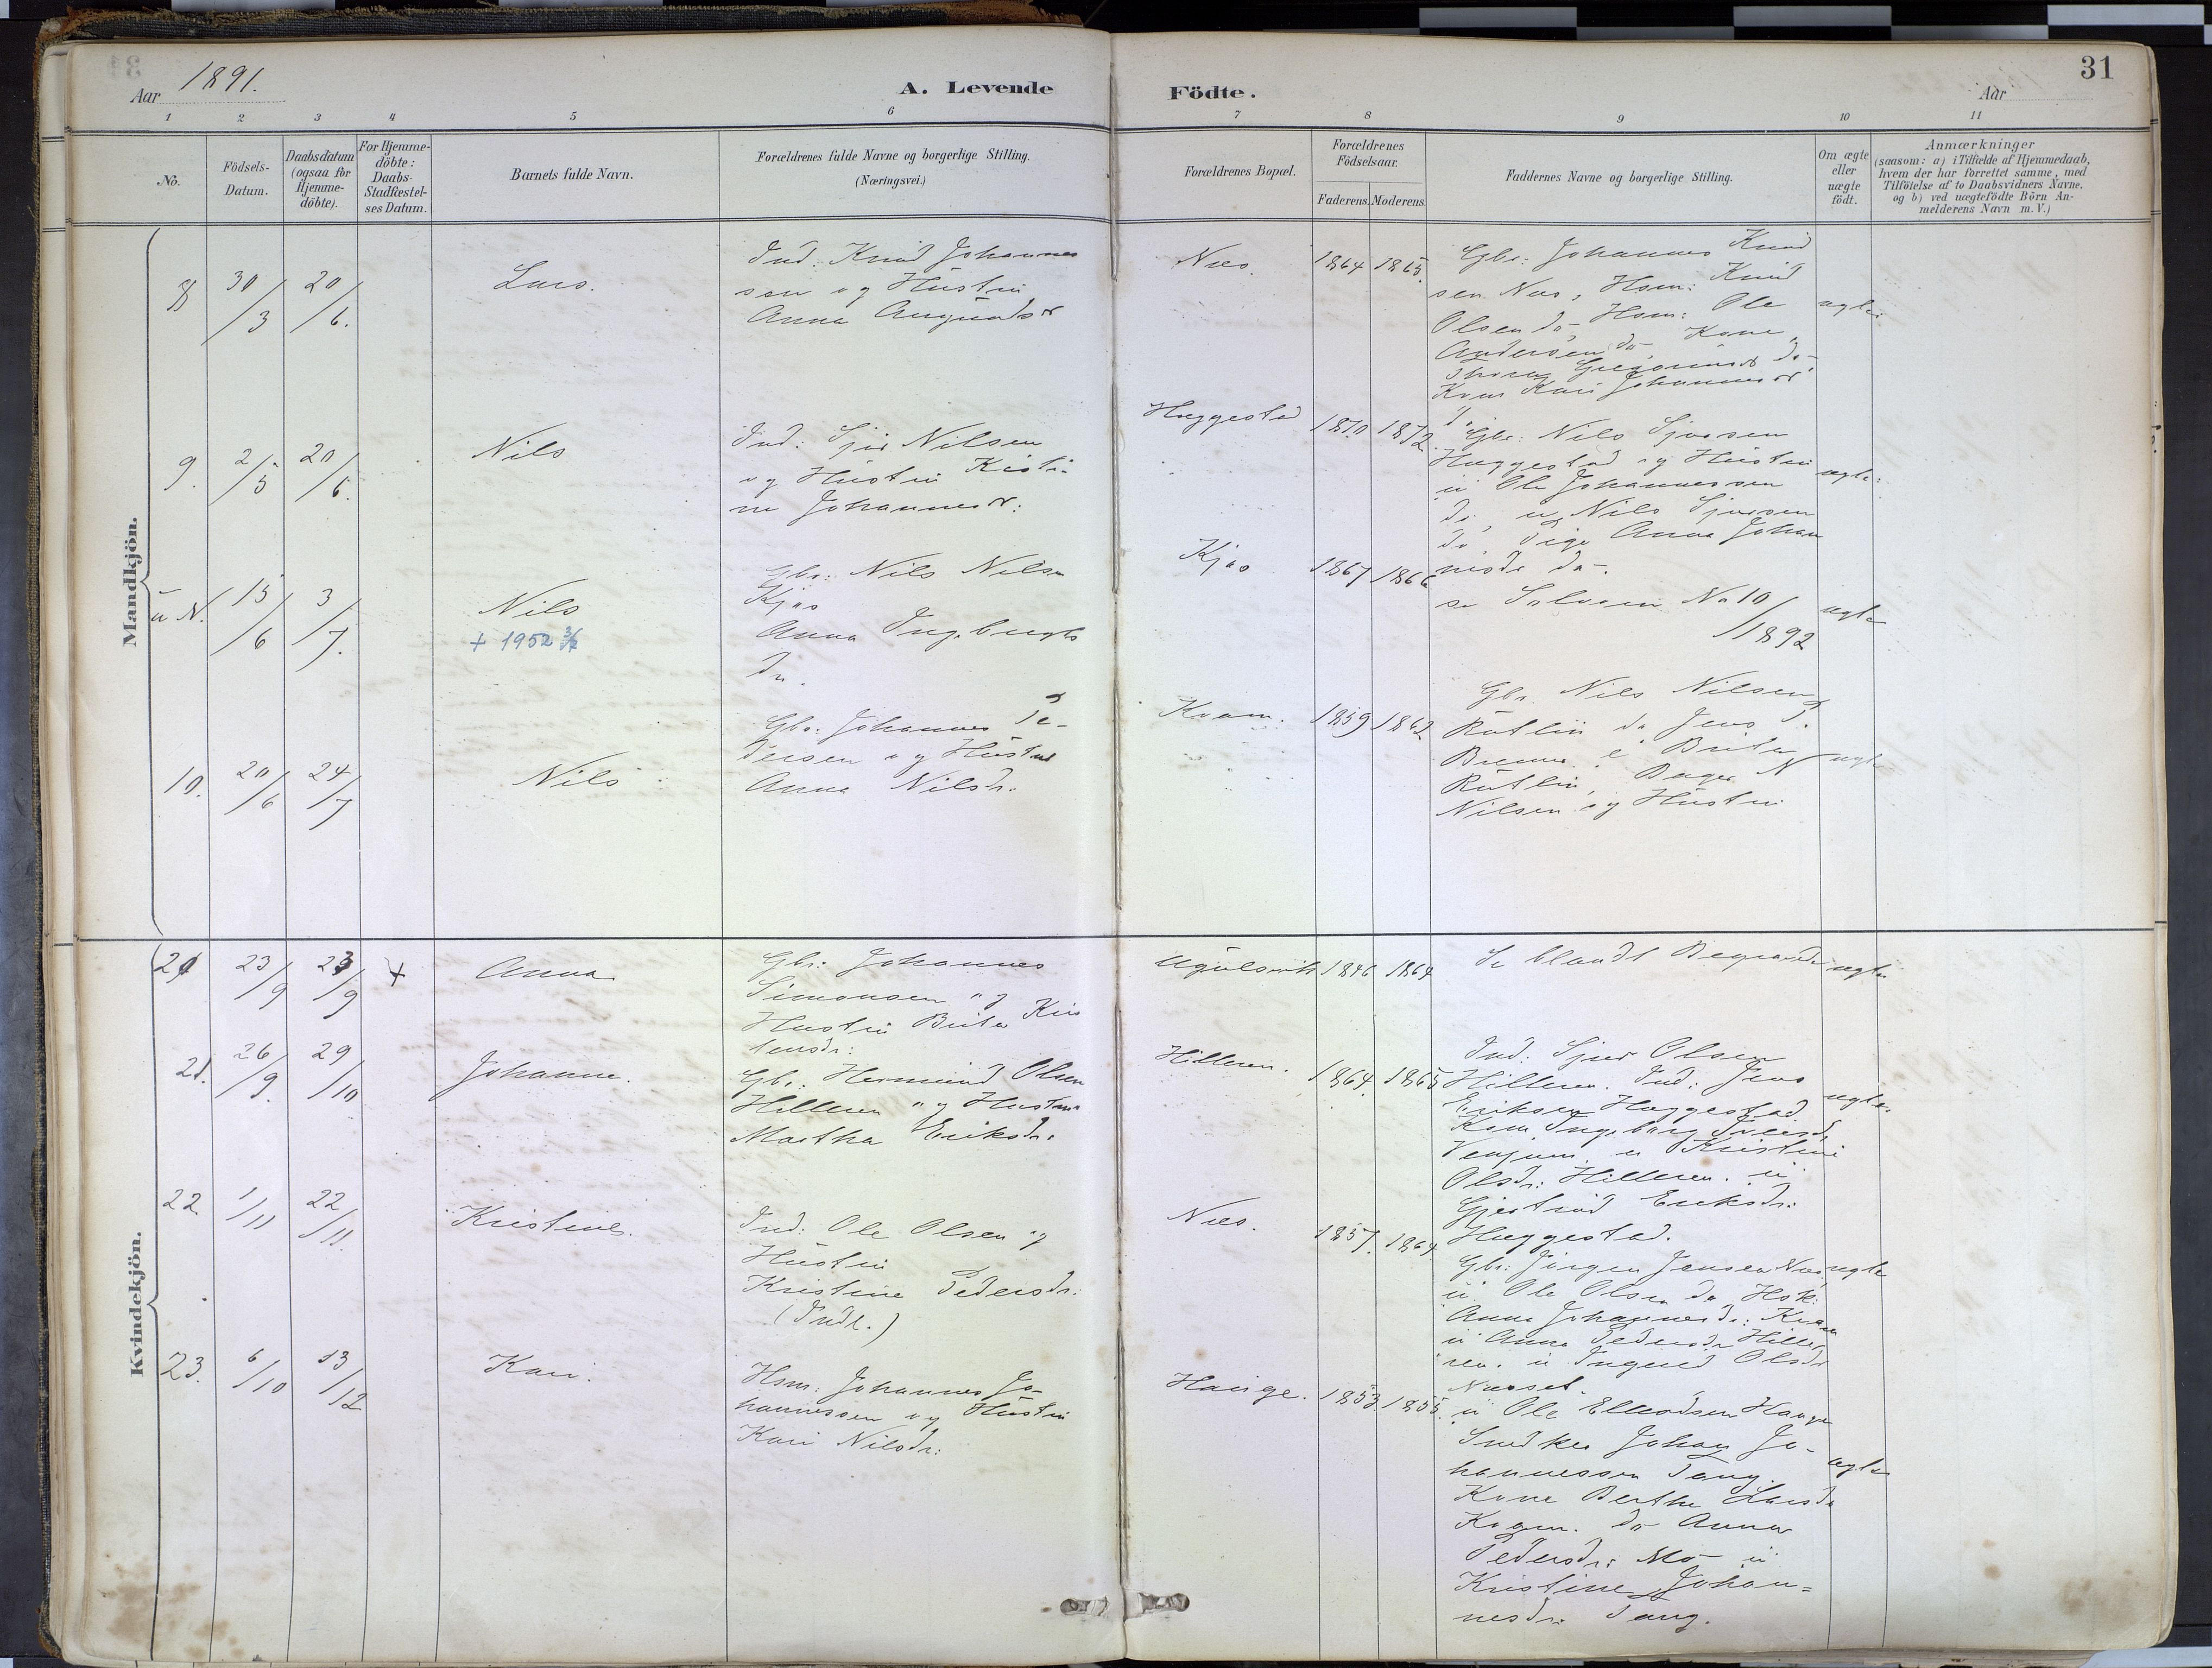 31
Aar 1891.
A. Levende
Födte.
Aar
1 2 3 4 5 6 7 8 9 10 11
No.
Födsels-
Datum.
Daabsdatum
(ogsaa for
Hjemme-
döbte).
For Hjemme-
döbte:
Daabs-
Stadfæstel-
ses Datum.
Barnets fulde Navn.
Forældrenes fulde Navne og borgerlige Stilling.
(Næringsvei.)
Forældrenes Bopæl.
Forældrenes
Födselsaar.
Faderens. Moderens.
Faddernes Navne og borgerlige Stilling.
Om ægte
eller
uægte
födt.
Anmærkninger
(saasom: a) i Tilfælde af Hjemmedaab,
hvem der har forrettet samme, med
Tilföielse af to Daabsvidners Navne,
og b) ved uægtefödte Börn An-
melderens Navn m.V.)
Mandkjön.
8 30/3 20/6.
Lars.
Ind: Knud Johannes
sen og Hustru
Anna
Næs. 1864 1865.
Gbr: Johannes Knud
sen Næs, Hsm: Knud
Olsen do, Hsm: Ole
Andersen do, Kone
Kone Kari Johannesdr
ægte
9. 2/5 20/6.
Nils
Ind: Sjur Nilsen
og Hustru Kisti-
ne Johannesdr:
Hæggestad 1870 1872.
Gbr: Nils Sjursen
Hæggestad og Hustru
u Ole Johannessen
do, u Nils Sjursen
do, Pige Anna Johan
nesdr do.
ægte
u N. 15/6 3/7.
Nils
+ 1952
Gbr: Nils Nilsen
Kjos
Anna Ingebrigts
dr.
Kjos 1867 1866
se No 10/1892
ægte
10. 20/6 24/7
Nils
Gbr: Johannes Pe-
dersen og Hustru
Anna Nilsdr.
Kvam. 1859 1862
Gbr. Nils Nilsen
Rutlin do Jens P.
Brita
Rutlin,
Nilsen og Hustru
ægte
Kvindekjön.
20 23/9 23/9 +
Anna
Gbr: Johannes
Simonsen og
Hustru Brita Kris
tensdr:
1846 1864
Se blandt Begravede
ægte
21. 26/9. 29/10
Johanne.
Gbr: Hermund Olsen
Hilleren og Hustru
Martha Eriksdr:
Hilleren. 1864. 1865
Ind: Sjur Olsen
Hilleren. Ind: Jens
Eriksen Hæggestad
Kone Ingeborg
Venjum u Kristine
Olsdr: Hilleren. u
Gjertrud Eriksdr:
Hæggestad.
ægte.
22. 1/11 22/11.
Kristine.
Ind: Ole Olsen og
Hustru
Kristine Pedersdr:
(Indl.)
Næs. 1857. 1864
Gbr: Jörgen Jensen Næs
u Ole Olsen do Hsk:
Anna Johannesdr: Kvam
u Anna Pedersdr Hille
ren. u Ingerid Olsdr
Næsset.
ægte
23. 6/10 13/12
Kari.
Hsm: Johannes Jo-
hannessen og Hustru
Kari Nilsdr:
Hauge. 1853. 1855.
u Ole Hauge
Snedker Johan Jo-
hannessen Tang.
Kone Berthe Larsdr
Kvam. do Anna
Pedersdr: Mo u
Kristine Johan=
nesdr: Tang.
ægte